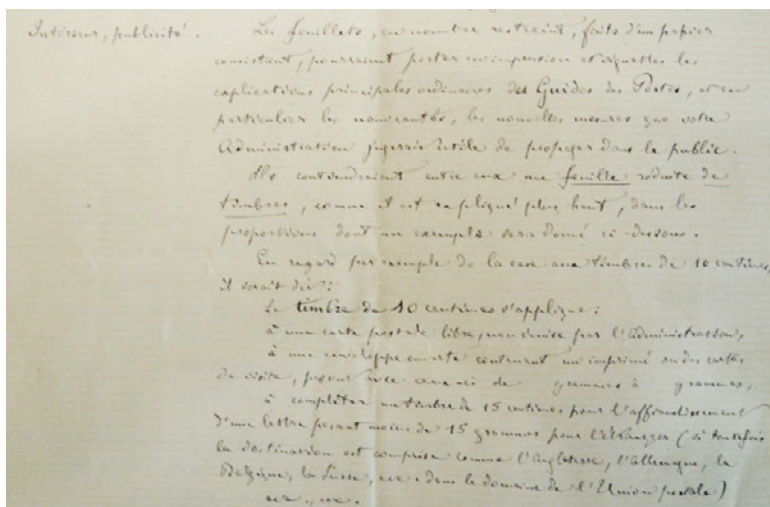 Intérieur, publicité.
Les feuillets, en nombre restreint, faits d'un papier
consistant, pourraient porter en impression et vignettes les
explications principales ordinaires des Guides des Postes, et en
particulier les nouveautés, les nouvelles mesures que votre
Administration jugerait utile de propager dans le public.
Ils contiendraient entre eux une feuille réduite de
timbres, comme il est expliqué plus haut, dans les
proportions dont un exemple sera donné ci-dessous.
En regard par exemple de la case aux timbres de 10 centimes,
il serait dit :
Le timbre de 10 centimes s'applique :
à une carte postale libre, non émise par l'Administration,
à une enveloppe ouverte contenant un imprimé ou des cartes
de visite, pesant avec de grammes à grammes,
à compléter un timbre de 15 centimes pour l'affranchissement
d'une lettre pesant moins de 15 grammes pour l'étranger (si toutefois
la destination est comprise comme l'Angleterre, l'Allemagne, la
Belgique, la Suisse, dans le domaine de l'Union postale)